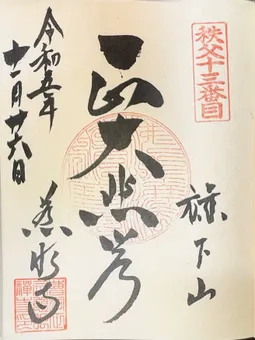 秩父十三番目
旗下山
正大悲
令和五年
十一月廿六日
慈眼寺